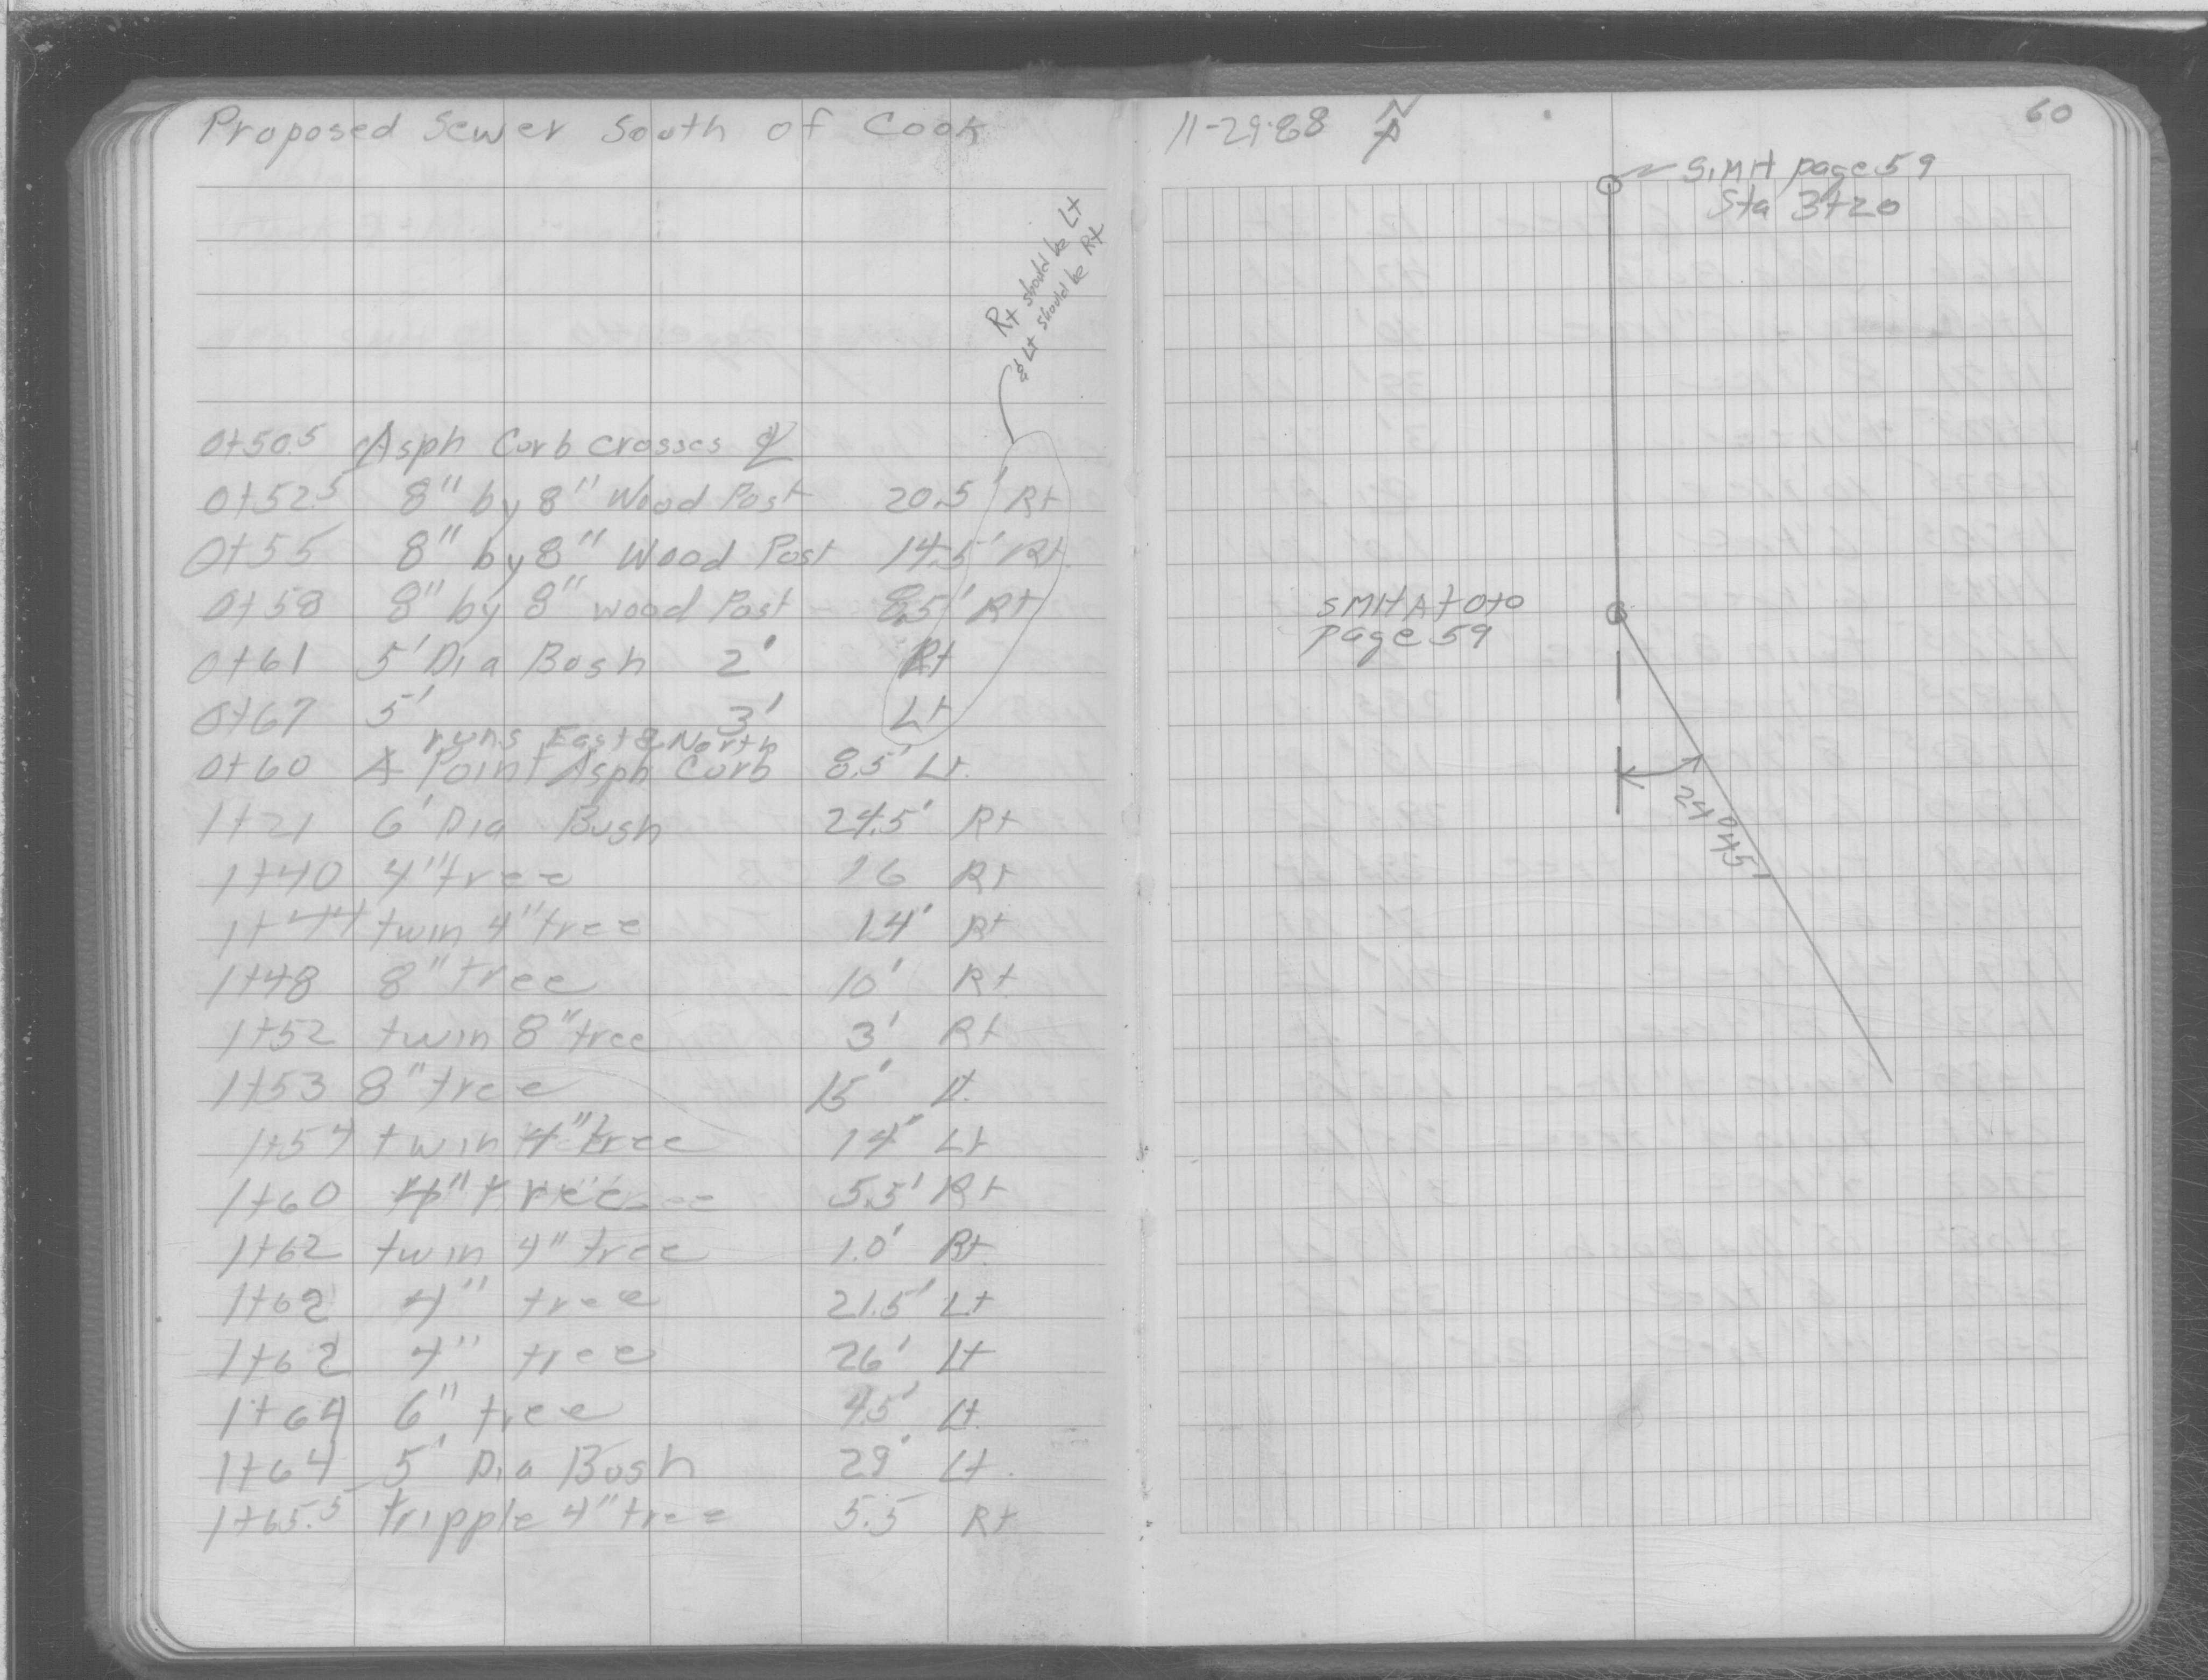 Proposed Sewer South of Cook
Rt should be Lt
& Lt should be Rt
0+50.5 Asph Curb crosses ℄
0+52.5 8" by 8" Wood Post 20.5' Rt
0+55 8" by 8" Wood Post 14.5' Rt.
0+58 8" by 8" wood Post 8.5' Rt
0+61 5' Dia Bush 2' Rt
0+67 5' 3' Lt
runs East & North
0+60 A Point Asph Curb 8.5' Lt.
1+21 6' Dia Bush 24.5' Rt
1+40 4" tree 16 Rt
1+44 twin 4" tree 14' Rt
1+48 8" tree 10' Rt
1+52 twin 8" tree 3' Rt
1+53 8" tree 15' Lt.
1+54 twin 4" tree 14' Lt
1+60 4" tree 5.5' Rt
1+62 twin 4" tree 1.0' Rt
1+62 4" tree 21.5' Lt
1+62 4" tree 26' Lt
1+64 6" tree 45' Lt.
1+64 5' Dia Bush 29' Lt.
1+65.5 tripple 4" tree 5.5 Rt
11-29-88 N
60
S.MH page 59
Sta 3+20
SMH At 0+0
page 59
24°45'